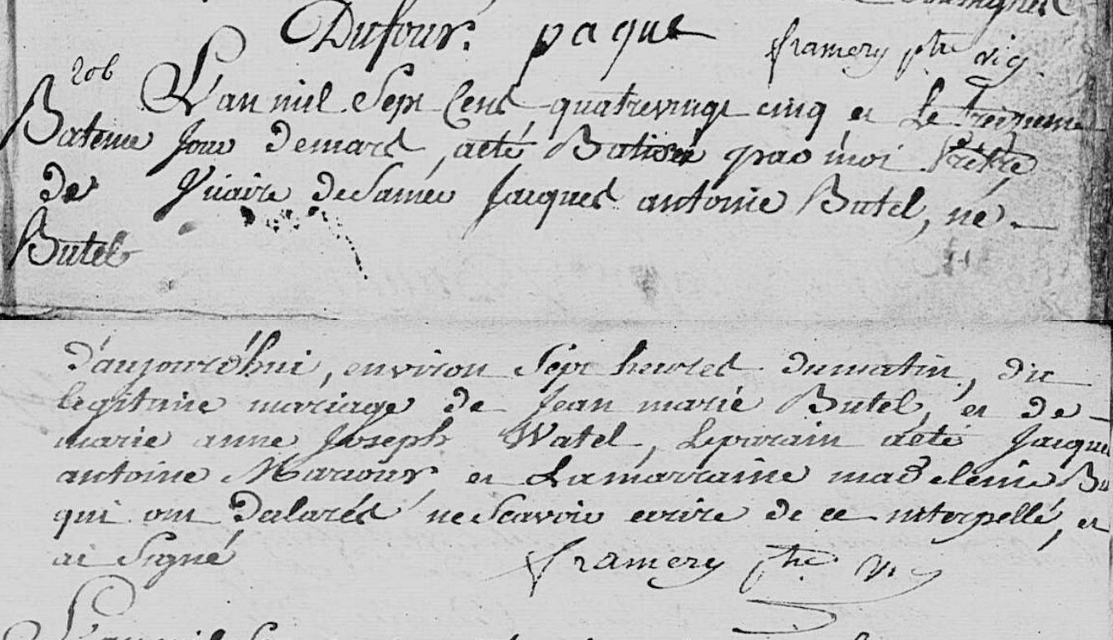 Dufour. paque framery ptre vig
206
L'an mil Sept Cens quatrevingt cinq et Le treizieme
Bateme Jour demars, aeté Batisé par moi Prêtre
de Vicaire deSamée Jacques antoine Butel, né
Butel
d'aujourd'hui, environ Sept heures dumatin, du
legitime mariage de Jean marie Butel, et de
marie anne Joseph Watel, Leparain aeté Jacque
antoine Mariour et Lamarraine madeleine Bu
qui ont Declarés ne Scavoir ecrire de ce interpellé, et
ai Signé framery ptre vig